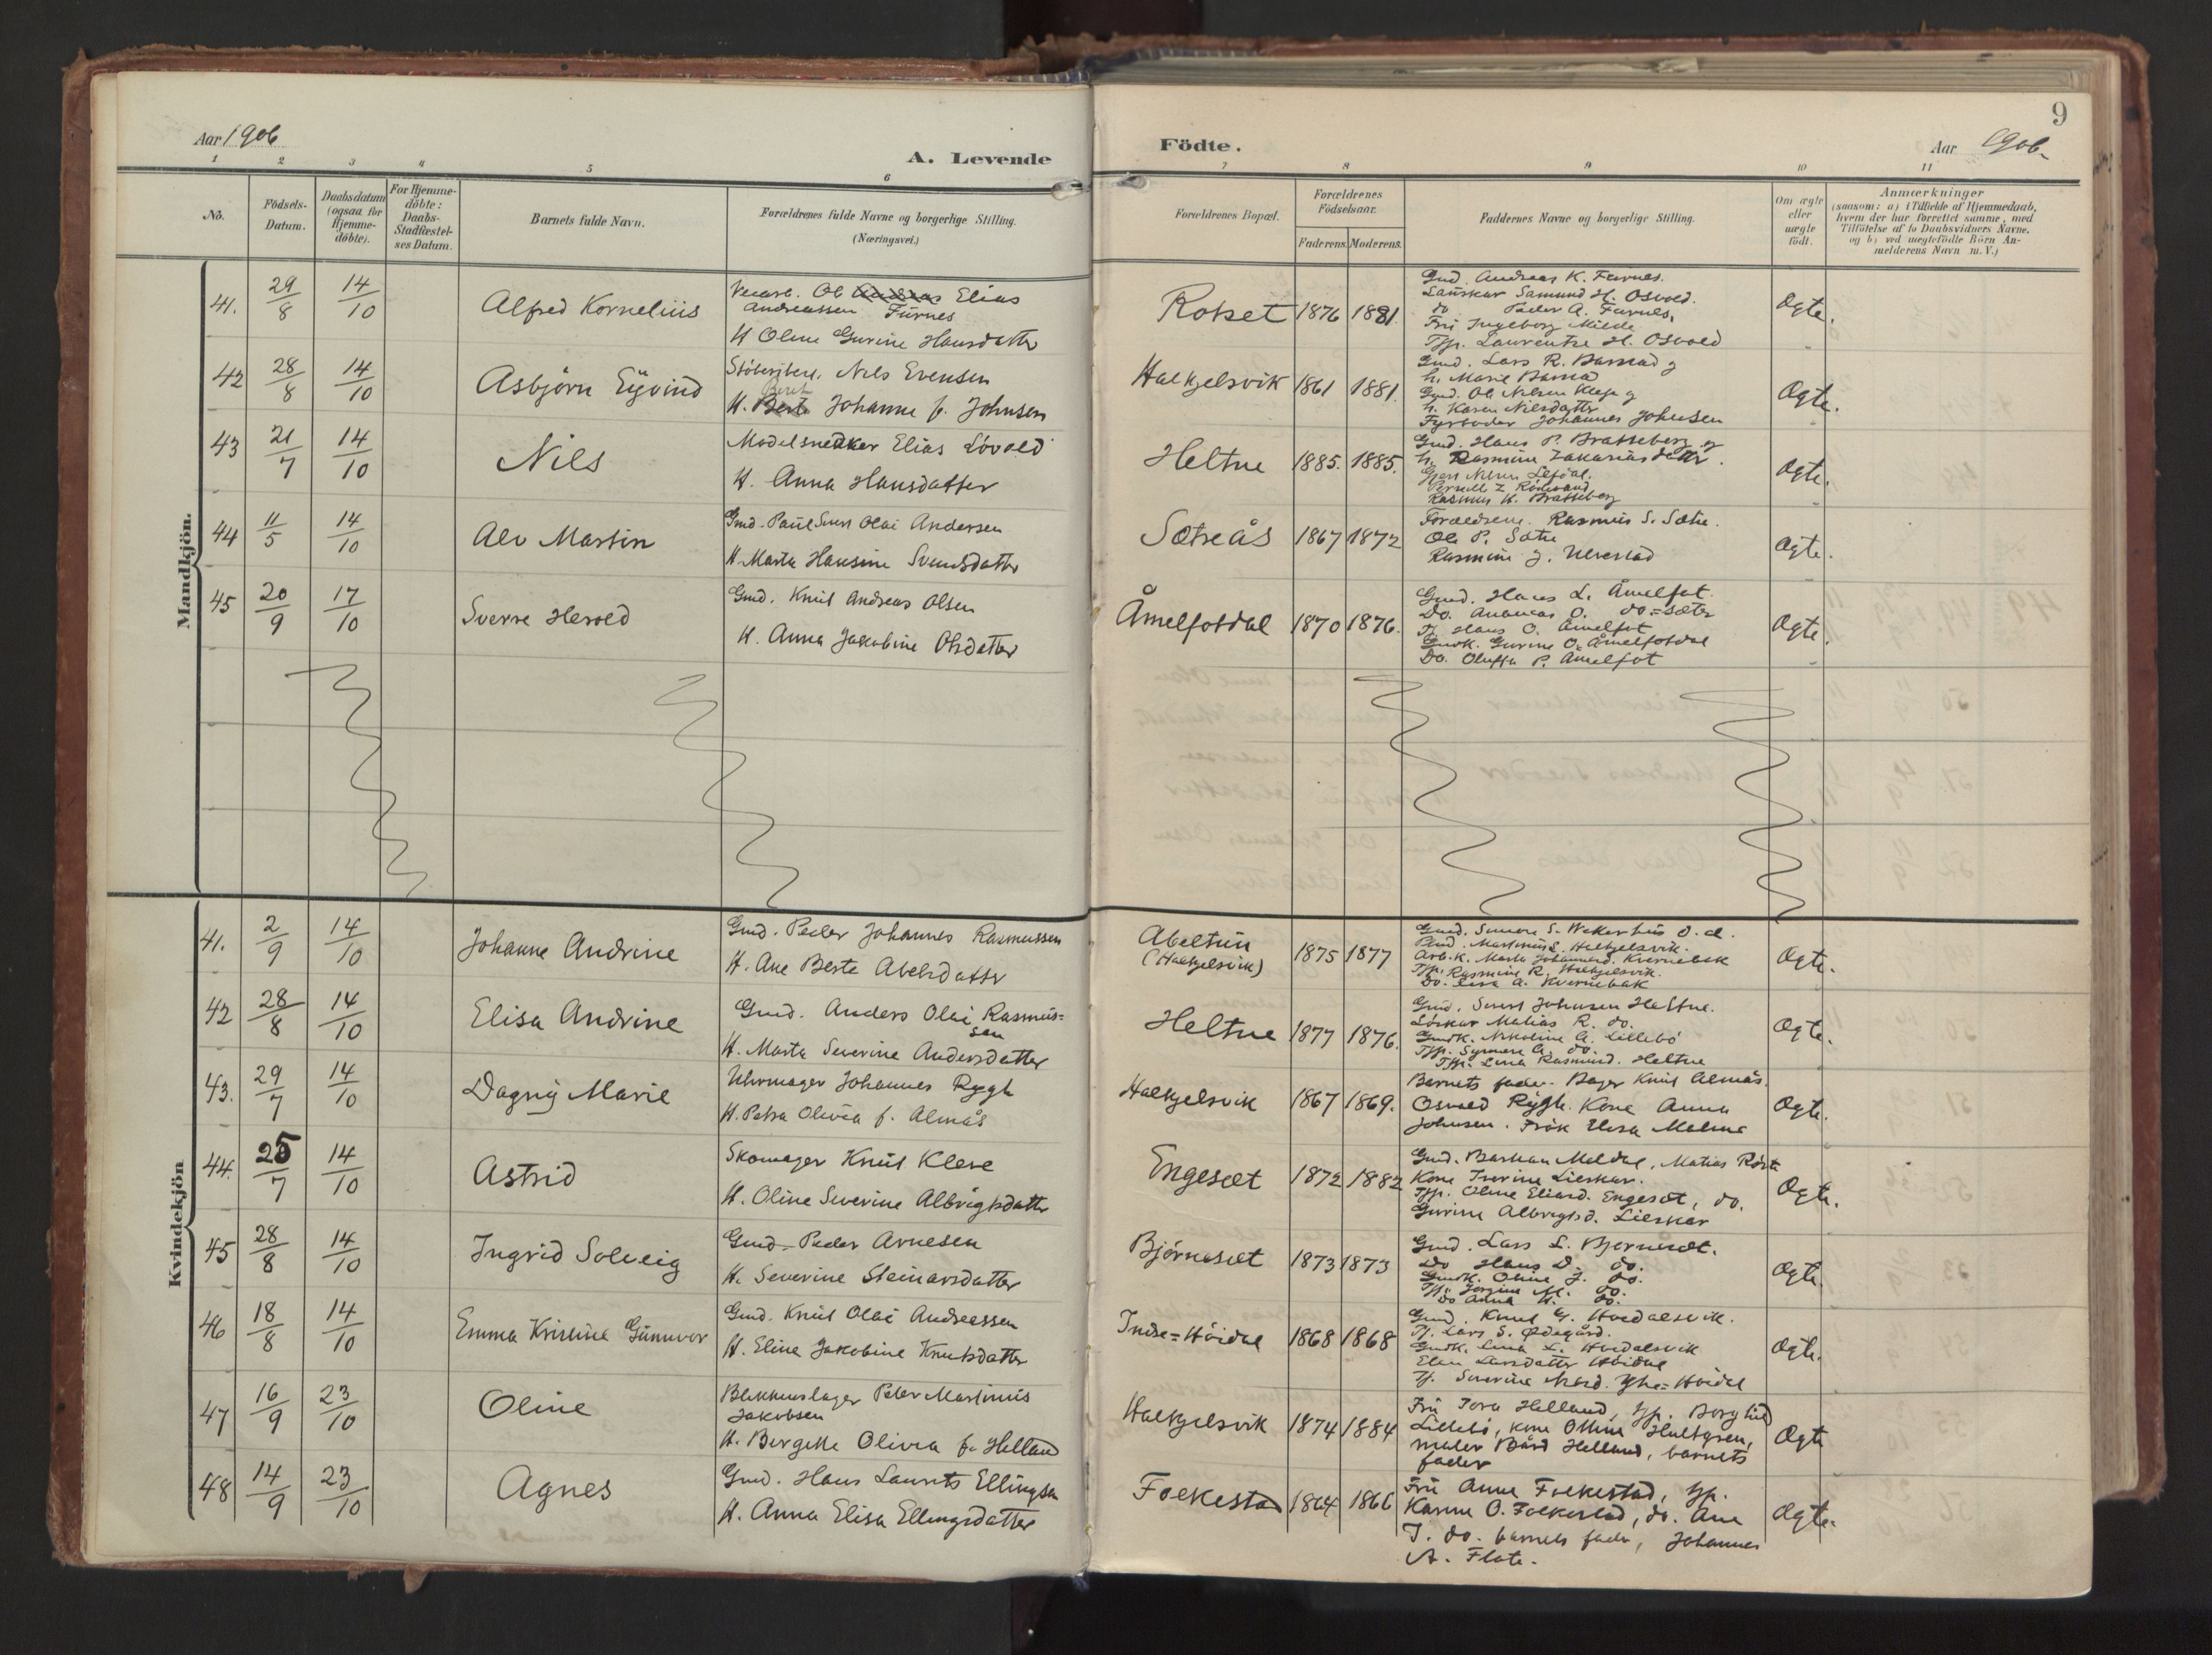 9
Aar 1906
A. Levende
Födte.
Aar 1906.
1 2 3 4 5 6 7 8 9 10 11
No.
Födsels-Datum.
Daabsdatum (ogsaa for Hjemme-döbte).
For Hjemme-döbte: Daabs-Stadfæstel-ses Datum.
Barnets fulde Navn.
Forældrenes fulde Navne og borgerlige Stilling. (Næringsvei.)
Forældrenes Bopæl.
Forældrenes Födselsaar.
Faderens. Moderens.
Faddernes Navne og borgerlige Stilling.
Om ægte eller uægte födt.
Anmærkninger
(saasom: a) i Tilfælde af Hjemmedaab, hvem der har forrettet samme, med Tilföielse af to Daabsvidners Navne. og b) ved uægtefödte Börn An-melderens Navn m. V.)
Mandkjön.
41. 29/8 14/10 Alfred Kornelius
Ol Andreas Elias
Andreassen Furnes
H Oline Gurine Hansdatter
Rotset 1876 1881.
Gmd. Andreas K. Furnes.
Lauskar Samund H. Osvold.
do Peder A. Furnes,
Fru Ingeborg Milde
Tjp. Laurentse H. Osvold
Ægte.
42 28/8 14/10 Asbjörn Eyvind
Nils Evensen
H. Berte Beret Johanne f. Johnsen
Halkjelsvik 1861 1881.
Gmd. Lars R. Barstad og
h. Marie Barstad
Gmd. Ole Nilsen Kleppe og
h. Karen Nilsdatter
Fyrboder Johannes Johnsen
Ægte.
43 21/7 14/10 Nils
Modelsnedker Elias Lövold
H. Anna Hansdatter
Heltne 1885. 1885.
Gmd. Hans P. Bratteberg og
h. Rasmine Zakariasdatter.
Rasmus H. Bratteberg
Ægte.
44 11/5 14/10 Alv Martin
Gmd. Paul Sivert Olai Andersen
H. Marta Hansine Svendsdatter
Sætreås 1867 1872
Forældrene. Rasmus S. Sætre.
Ole P. Sætre
Rasmine J. Ulvestad
Ægte.
45 20/9 17/10 Sverre Herold
Gmd. Knut Andreas Olsen
H. Anna Jakobine Olsdatter
Åmelfotdal 1870 1876.
Gmd. Hans L. Åmelfot.
Do. Andreas O. do = Sæter
Tj. Hans O. Åmelfot
Gmdk. Gurine O. Åmelfotdal
Do. Oluffa P. Åmelfot
Ægte.
Kvindekjön
41. 2/9 14/10 Johanne Andrine
Gmd. Peder Johannes Rasmussen
H. Ane Berte Abelsdatter
Abeltun
(Halkjelsvik) 1875 1877
Arb.k. Marta Johannesd. Kvernebak
Tjp. Rasmine R. Halkjelsvik.
Do. Lisa A. Kvernebak
Ægte.
42 28/8 14/10 Elisa Andrine
Gmd. Anders Olai Rasmus=
sen
H. Marta Severine Andersdatter
Heltne 1877 1876.
Gmd. Sivert Johnsen Heltne.
Löskar Matias R. do.
Gmdk. Nikoline A. Lillebö
Tjp. Synnöve A. do.
Tjp. Lina Rasmusd. Heltne
Ægte.
43. 29/7 14/10 Dagny Marie
Uhrmager Johannes Rygh
H. Petra Olivia f. Almås
Halkjelsvik 1867 1869.
Barnets fader. Bager Knut Almås.
Osvald Rygh. Kone Anna
Johnsen. Frök Elisa Malme
Ægte.
44. 25/7 14/10 Astrid
Skomager Knut Kleve
H. Oline Severine Albrigtsdatter
Engeset 1872 1882
Gmd. Bastian Meldal, Matias Röset
Kone Iverine Lieskar.
Tjp. Oline Eliasd. Engeset, do.
Gurine Albrigtsd. Lieskar
Ægte.
45 28/8 14/10 Ingrid Solveig
Gmd. Peder Arnesen
H. Severine Steinarsdatter
Björneset 1873 1873
Gmd. Lars L. Bjorneset.
Do Hans D. do.
Gmdk. Oline J. do.
Tjp. Jorgine M. do.
Do Anna H. do.
Ægte.
46 18/8 14/10 Emma Kristine Gunnvor
Gmd. Knut Olai Andreassen
H. Eline Jakobine Knutsdatter
Indre=Höidal 1868 1868
Gmd. Knut G. Hovdalsvik.
Tj. Lars S. Ødegård.
Gmdk. Lina L. Hovdalsvik
Elen Larsdatter Höidal
Tj. Severine Nilsd. Ytre=Höidal
Ægte.
47 16/9 23/10 Oline
Blikkenslager Peter Martinus
Jakobsen
H. Bergitte Olivia f. Helland
Halkjelsvik 1874 1884
Fru Tora Helland, tjp. Borghild
Lillebö, kone Oline Hultgren,
maler Bård Helland, barnets
fader
Ægte
48 14/9 23/10 Agnes
Gmd. Hans Laurits Ellingsen
H. Anna Elisa Ellingsdatter
Folkestad 1864 1866
Fru Anne Folkestad, tjp.
Karine O. Folkestad, do. Ane
J. do. barnets fader, Johannes
A. Flote.
Ægte.